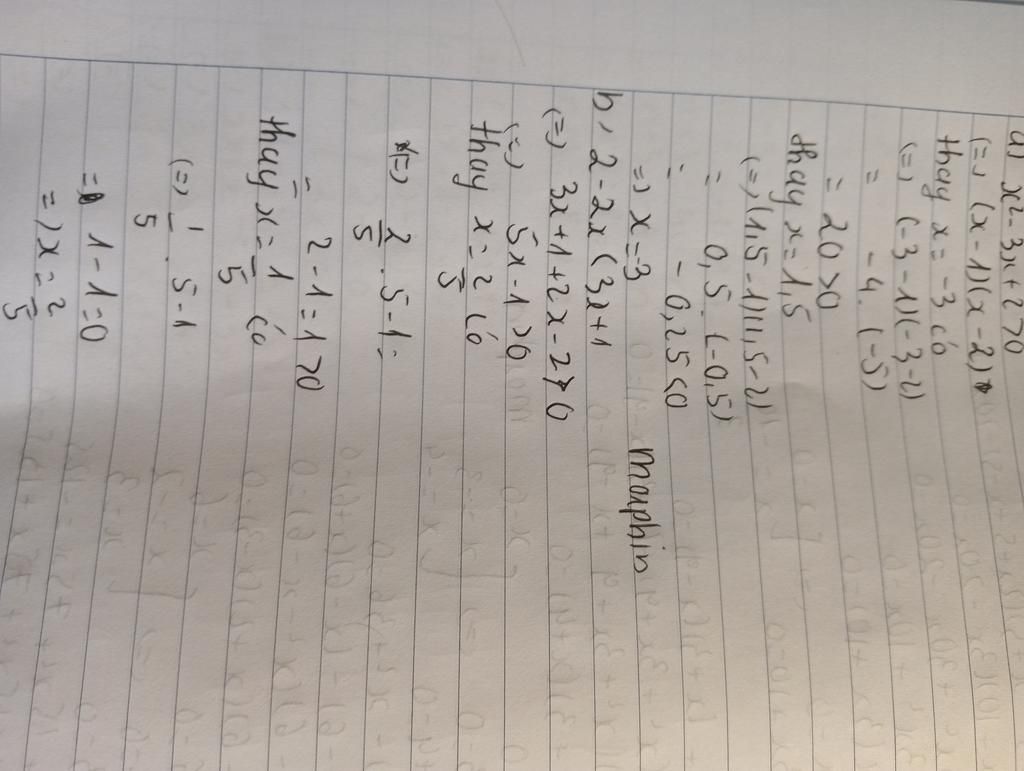 a) x² - 3x + 2 > 0
(=) (x - 1)(x - 2)
thay x = -3 có
(=) (-3 - 1)(-3 - 2)
= -4. (-5)
= 20 > 0
thay x = 1,5
(=) (1,5 - 1)(1,5 - 2)
= 0,5. (-0,5)
= - 0,25 < 0
=) x = -3
maiphin
b, 2 - 2x < 3x + 1
(=) 3x + 1 + 2x - 2 > 0
(=) 5x - 1 > 0
thay x = 2/5 có
(=) 2/5 . 5 - 1 =
= 2 - 1 = 1 > 0
thay x = 1/5 có
(=) 1/5 . 5 - 1
= 1 - 1 = 0
=) x = 2/5